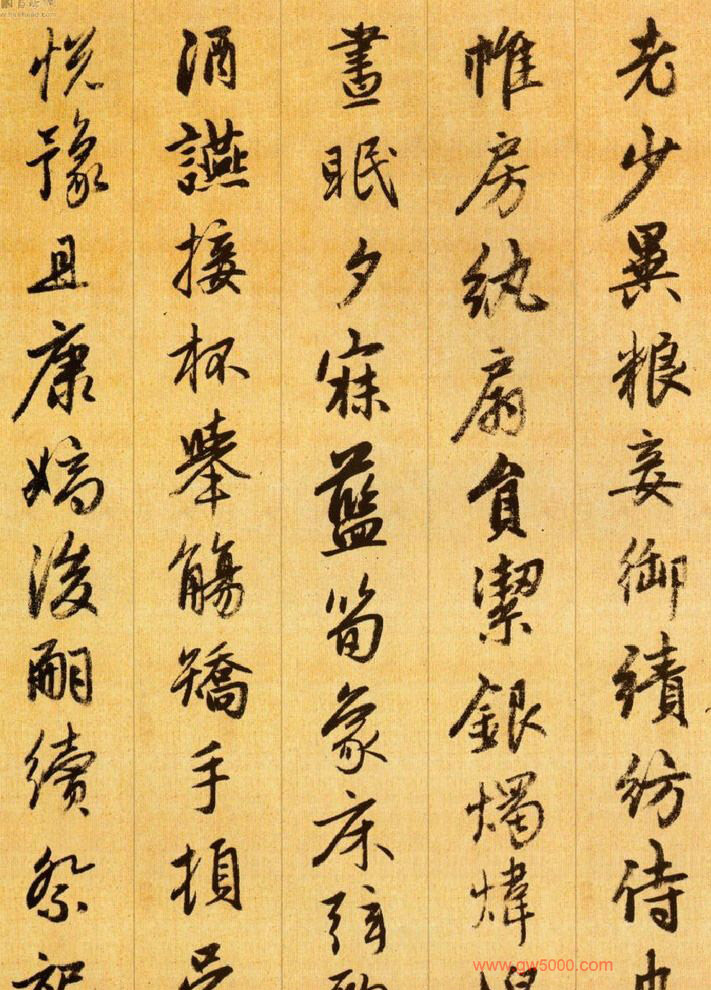 老少異粮妾御績紡侍
帷房紈扇員潔銀燭煒
晝眠夕寐藍筍象床弦
酒讌接杯舉觴矯手頓
悅豫且康嫡後嗣續祭
www.gw5000.com